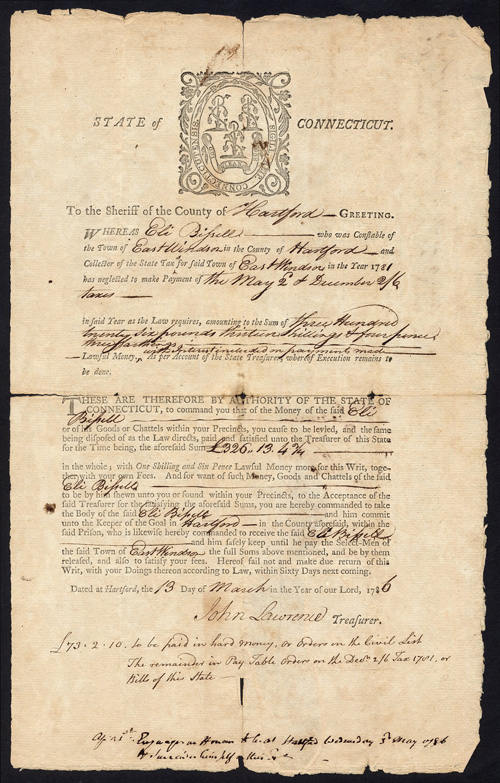 STATE of CONNECTICUT.
To the Sheriff of the County of Hartford — GREETING.
WHEREAS Eli Bissell who was Constable of
the Town of East Windsor in the County of Hartford — and
Collector of the State Tax for said Town of East Windsor in the Year 1781
has neglected to make Payment of the May 2d & December 2/6
taxes —
in said Year as the Law requires, amounting to the Sum of three Hundred
twenty six pounds thirteen shillings & four pence
three farthings with Interest included on payment made
Lawful Money, As per Account of the State Treasurer, whereof Execution remains to
be done.
THESE ARE THEREFORE BY AUTHORITY OF THE STATE OF
CONNECTICUT, to command you that of the Money of the said Eli
Bissell
or of his Goods or Chattels within your Precincts, you cause to be levied, and the same
being disposed of as the Law directs, paid and satisfied unto the Treasurer of this State
for the Time being, the aforesaid Sum £326.. 13. 4¾
in the whole; with One Shilling and Six Pence Lawful Money more for this Writ, toge-
ther with your own Fees. And for want of such Money, Goods and Chattels of the said
Eli Bissell
to be by him shewn unto you or found within your Precincts, to the Acceptance of the
said Treasurer for the satisfying the aforesaid Sums, you are hereby commanded to take
the Body of the said Eli Bissell and him commit
unto the Keeper of the Goal in Hartford — in the County aforesaid, within the
said Prison, who is likewise hereby commanded to receive the said Eli Bissell
and him safely keep until he pay the Select-Men of
the said Town of East Windsor the full Sums above mentioned, and be by them
released, and also to satisfy your Fees. Hereof fail not and make due return of this
Writ, with your Doings thereon according to Law, within Sixty Days next coming.
Dated at Hartford, the 13 Day of March in the Year of our Lord, 1786
John Lawrence Treasurer.
£73. 2. 10. to be paid in hard money, or orders on the Civil List
The remainder in Pay Table Orders on the Decr 2/6 Tax 1781, or
Bills of this State —
Hartford Wednesday 3d May 1786